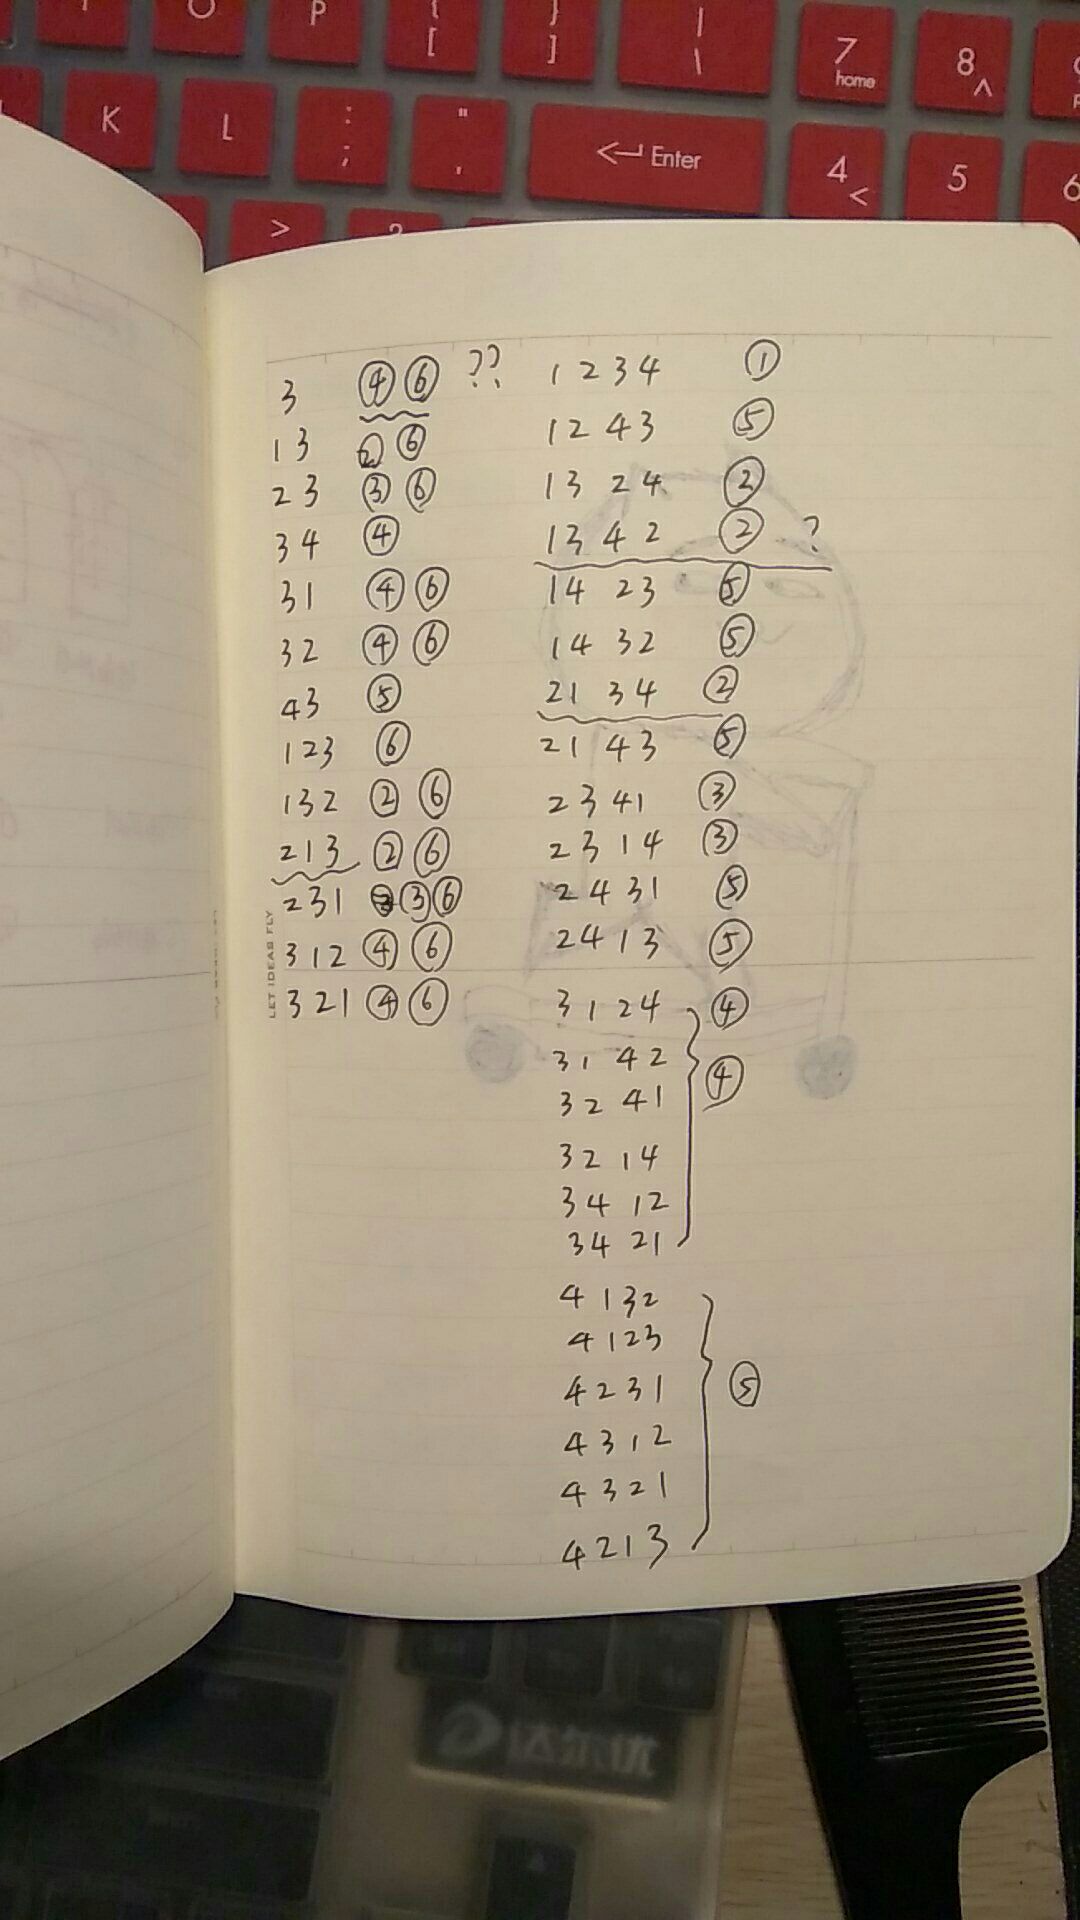 O P { [ } ] | \ 7 home 8 ^
K L : ; " ' Enter 4 < 5 6
> ?
3 ④ ⑥ ??
13 ② ⑥
23 ③ ⑥
34 ④
31 ④ ⑥
32 ④ ⑥
43 ⑤
123 ⑥
132 ② ⑥
213 ② ⑥
231 ③ ⑥
312 ④ ⑥
321 ④ ⑥
LET IDEAS FLY
1234 ①
1243 ⑤
13 24 ②
13 42 ② ?
14 23 ⑤
14 32 ⑤
21 34 ②
21 43 ⑤
2341 ③
2314 ③
2431 ⑤
2413 ⑤
3124 ④
31 42 ④
32 41
32 14
34 12
34 21
4132
4123
4231 ⑤
4312
4321
4213
达尔优